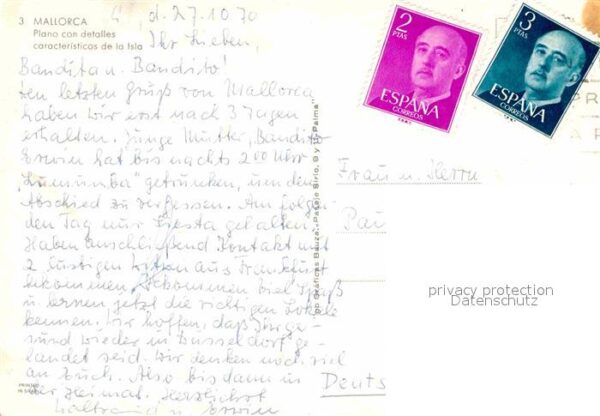 3 MALLORCA
Plano con detalles
características de la Isla
d. 27.10.70
Ihr Lieben,
Bandita u. Bandito!
Den letzten Gruß von Mallorca
haben wir erst nach 3 Tagen
erhalten. Junge Mutter, Bandito
Erwin hat bis nachts 2 00 Uhr
"Lumumba" getrunken, um den
Abschied zu vergessen. Am folgen-
den Tag nur Siesta gehalten.
Haben anschließend Kontakt mit
2 lustigen aus Frankfurt
bekommen, bekommen viel Spaß
u. lernen jetzt die richtigen Lokale
kennen. Wir hoffen, daß Ihr ge-
sund wieder in Düsseldorf ge-
landet seid. Wir denken noch viel
an Euch. Also bis dann in
der Heimat. Herzlichst
Waltraud u. Erwin
Gráficas Bauzá, "Pasaje Sirio, 9 y 11 Palma"
2
PTAS
ESPAÑA
CORREOS
3
PTAS
ESPAÑA
CORREOS
Frau u. Herrn
Pau
privacy protection
Datenschutz
Deuts